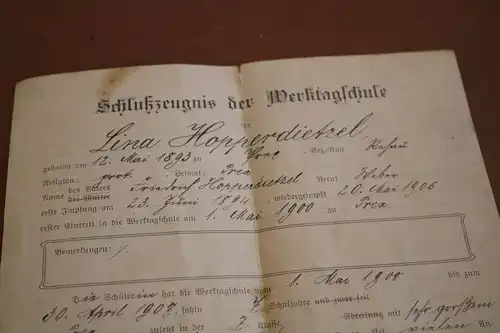 Schlußzeugnis der Werktagschule
für
Lina Hopperdietzel.
geboren am 12. Mai 1893 zu Prex Bez.-Amt Rehau
Religion: prot. Heimat: Prex Beruf Weber
Name des Vaters Friedrich Hopperdietzel
der Mutter
erste Impfung am 23. Juni 1894. wiedergeimpft 20. Mai 1905
erster Eintritt in die Werktagschule am 1. Mai 1900 zu Prex
Bemerkungen: /.
Die Schülerin hat die Werktagschule vom 1. Mai 1900 bis zum
30. April 1907, sohin 7 Schuljahre und zwar seit
zuletzt in der 2. Klasse, Abteilung mit sehr großem
vielen An-